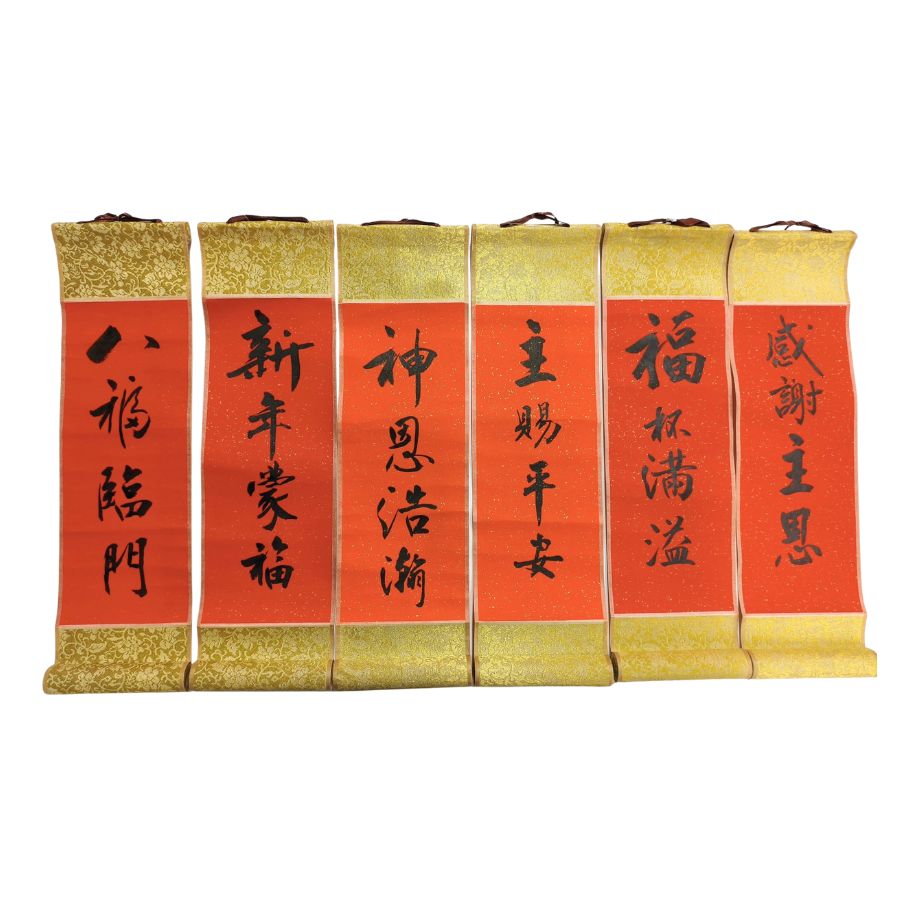 八福臨門
新年蒙福
神恩浩瀚
主賜平安
福杯滿溢
感謝主恩